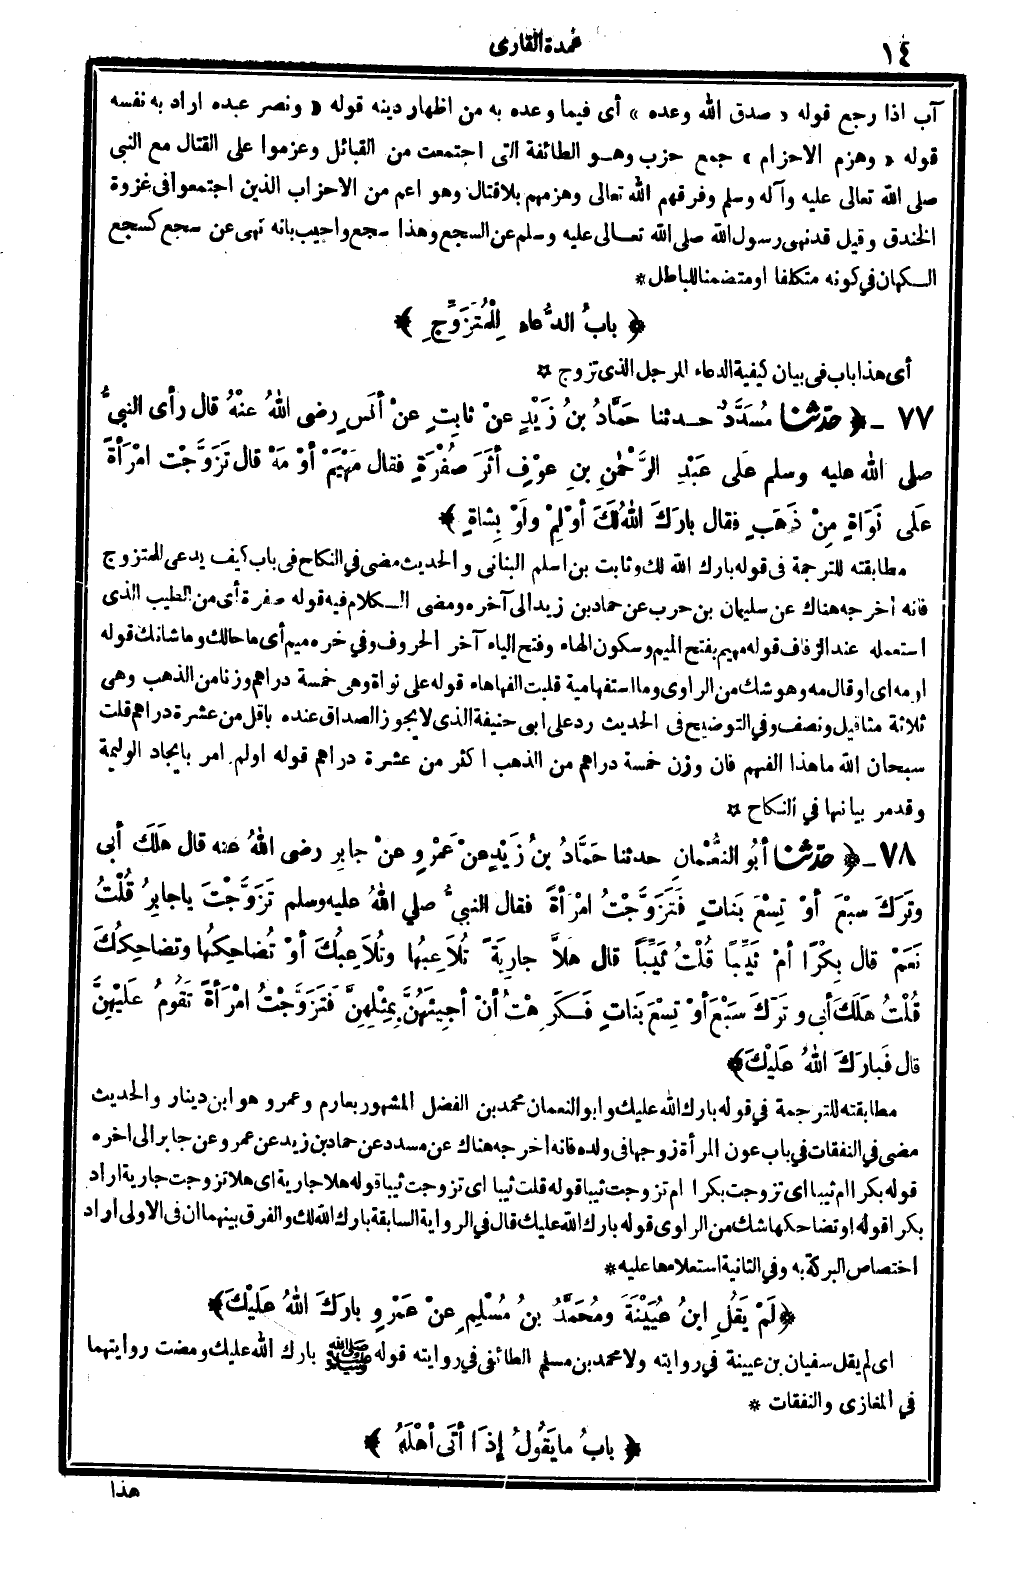 ١٤
عمدة القارى
آب اذا رجع قوله « صدق الله وعده » أى فيما وعده به من اظهار دينه قوله « ونصر عبده اراد به نفسه
قوله « وهزم الاحزام » جمع حزب وهو الطائفة التى اجتمعت من القبائل وعزموا على القتال مع النبى
صلى الله تعالى عليه وآله وسلم وفرقهم الله تعالى وهزمهم بلاقتال وهو اعم من الاحزاب الذين اجتمعوا فى غزوة
الخندق وقيل قدنهى رسول الله صلى الله تعالى عليه وسلم عن السجع وهذا سجع واجيب بانه نهى عن سجع كسجع
الكهان في كونه متكلفا اومتضمنا للباطل *
﴿ بابُ الدُّعاءِ لِلْمُتَزَوِّجِ ﴾
أى هذا باب فى بيان كيفية الدعاء المرجل الذى تزوج ☆
٧٧ - ﴿ حدّثنا مُسَدَّدٌ حدثنا حَمَّادُ بنُ زَيْدٍ عنْ ثابِتٍ عنْ أنَسٍ رضى اللهُ عنْهُ قال رأى النبىُّ
صلى الله عليه وسلم عَلَى عَبْدِ الرَّحْمٰنِ بنِ عوْفٍ أثَرَ صُفْرَةٍ فقال مَهْيَمْ أوْ مَهْ قال تَزَوَّجْتُ امْرَأةً
عَلَى نَوَاةٍ مِنْ ذَهَبٍ فقال بارَكَ اللهُ لَكَ أوْلِمْ ولَوْ بِشاةٍ ﴾
مطابقته للترجمة فى قوله بارك الله لك وثابت بن اسلم البنانى والحديث مضى في النكاح فى باب كيف يدعى للمتزوج
فانه أخرجه هناك عن سليمان بن حرب عن حماد بن زيد الى آخره ومضى الكلام فيه قوله صفرة أى من الطيب الذى
استعمله عند الزفاف قوله مهيم بفتح الميم وسكون الهاء وفتح الياء آخر الحروف وفي خره ميم أى ما حالك وما شانك قوله
او مه اى او قال مه وهو شك من الراوى وما استفهامية قلبت الفها هاء قوله على نواة وهى خمسة دراهم وزنا من الذهب وهى
ثلاثة مثاقيل ونصف وفي التوضيح فى الحديث رد على ابى حنيفة الذى لا يجوز الصداق عنده باقل من عشرة دراهم قلت
سبحان الله ما هذا الفهم فان وزن خمسة دراهم من الذهب اكثر من عشرة دراهم قوله اولم امر بايجاد الوليمة
وقدمر بيانها في النكاح ☆
٧٨ - ﴿ حدّثنا أبُو النُّعْمانِ حدثنا حَمَّادُ بنُ زَيْدٍ عنْ عَمْرٍو عنْ جابِرٍ رضى اللهُ عنه قال هَلَكَ أبى
وتَرَكَ سبْعَ أوْ تِسْعَ بَناتٍ فَتَزَوَّجْتُ امْرَأةً فقال النبىُّ صلى اللهُ عليه وسلم تَزَوَّجْتَ ياجابِرُ قُلْتُ
نَعَمْ قال بِكْرًا أمْ ثَيِّبًا قُلْتُ ثَيِّبًا قال هلاَّ جارِيَةً تُلاَعِبُها وتُلاَعِبُكَ أوْ تُضاحِكُها وتضاحِكُكَ
قُلْتُ هَلَكَ أبى وتَرَكَ سَبْعَ أوْ تِسْعَ بَناتٍ فَكَرِهْتُ أنْ أجِيئَهُنَّ بِمِثْلِهِنَّ فَتَزَوَّجْتُ امْرَأةً تَقُومُ عَلَيْهِنَّ
قال فَبارَكَ اللهُ عَلَيْكَ ﴾
مطابقته للترجمة في قوله بارك الله عليك وابو النعمان محمد بن الفضل المشهور بعارم وعمرو هو ابن دينار والحديث
مضى في النفقات في باب عون المرأة زوجها فى ولده فانه اخرجه هناك عن مسدد عن حماد بن زيد عن عمرو عن جابر الى اخره
قوله بكرا ام ثيبا اى تزوجت بكرا ام تزوجت ثيبا قوله قلت ثيبا اى تزوجت ثيبا قوله هلا جارية اى هلا تزوجت جارية اراد
بكرا قوله او تضاحكها شك من الراوى قوله بارك الله عليك قال في الرواية السابقة بارك الله لك والفرق بينهما ان فى الاولى اراد
اختصاص البركة به وفي الثانية استعلاءها عليه *
﴿ لَمْ يَقُلِ ابنُ عُيَيْنَةَ ومُحَمَّدُ بنُ مُسْلِمٍ عنْ عَمْرٍو بارَكَ اللهُ عَلَيْكَ ﴾
اى لم يقل سفيان بن عيينة في روايته ولا محمد بن مسلم الطائفى في روايته قوله ﷺ بارك الله عليك ومضت روايتهما
في المغازى والنفقات *
﴿ بابُ ما يَقُولُ إذَا أتَى أهْلَهُ ﴾
هذا